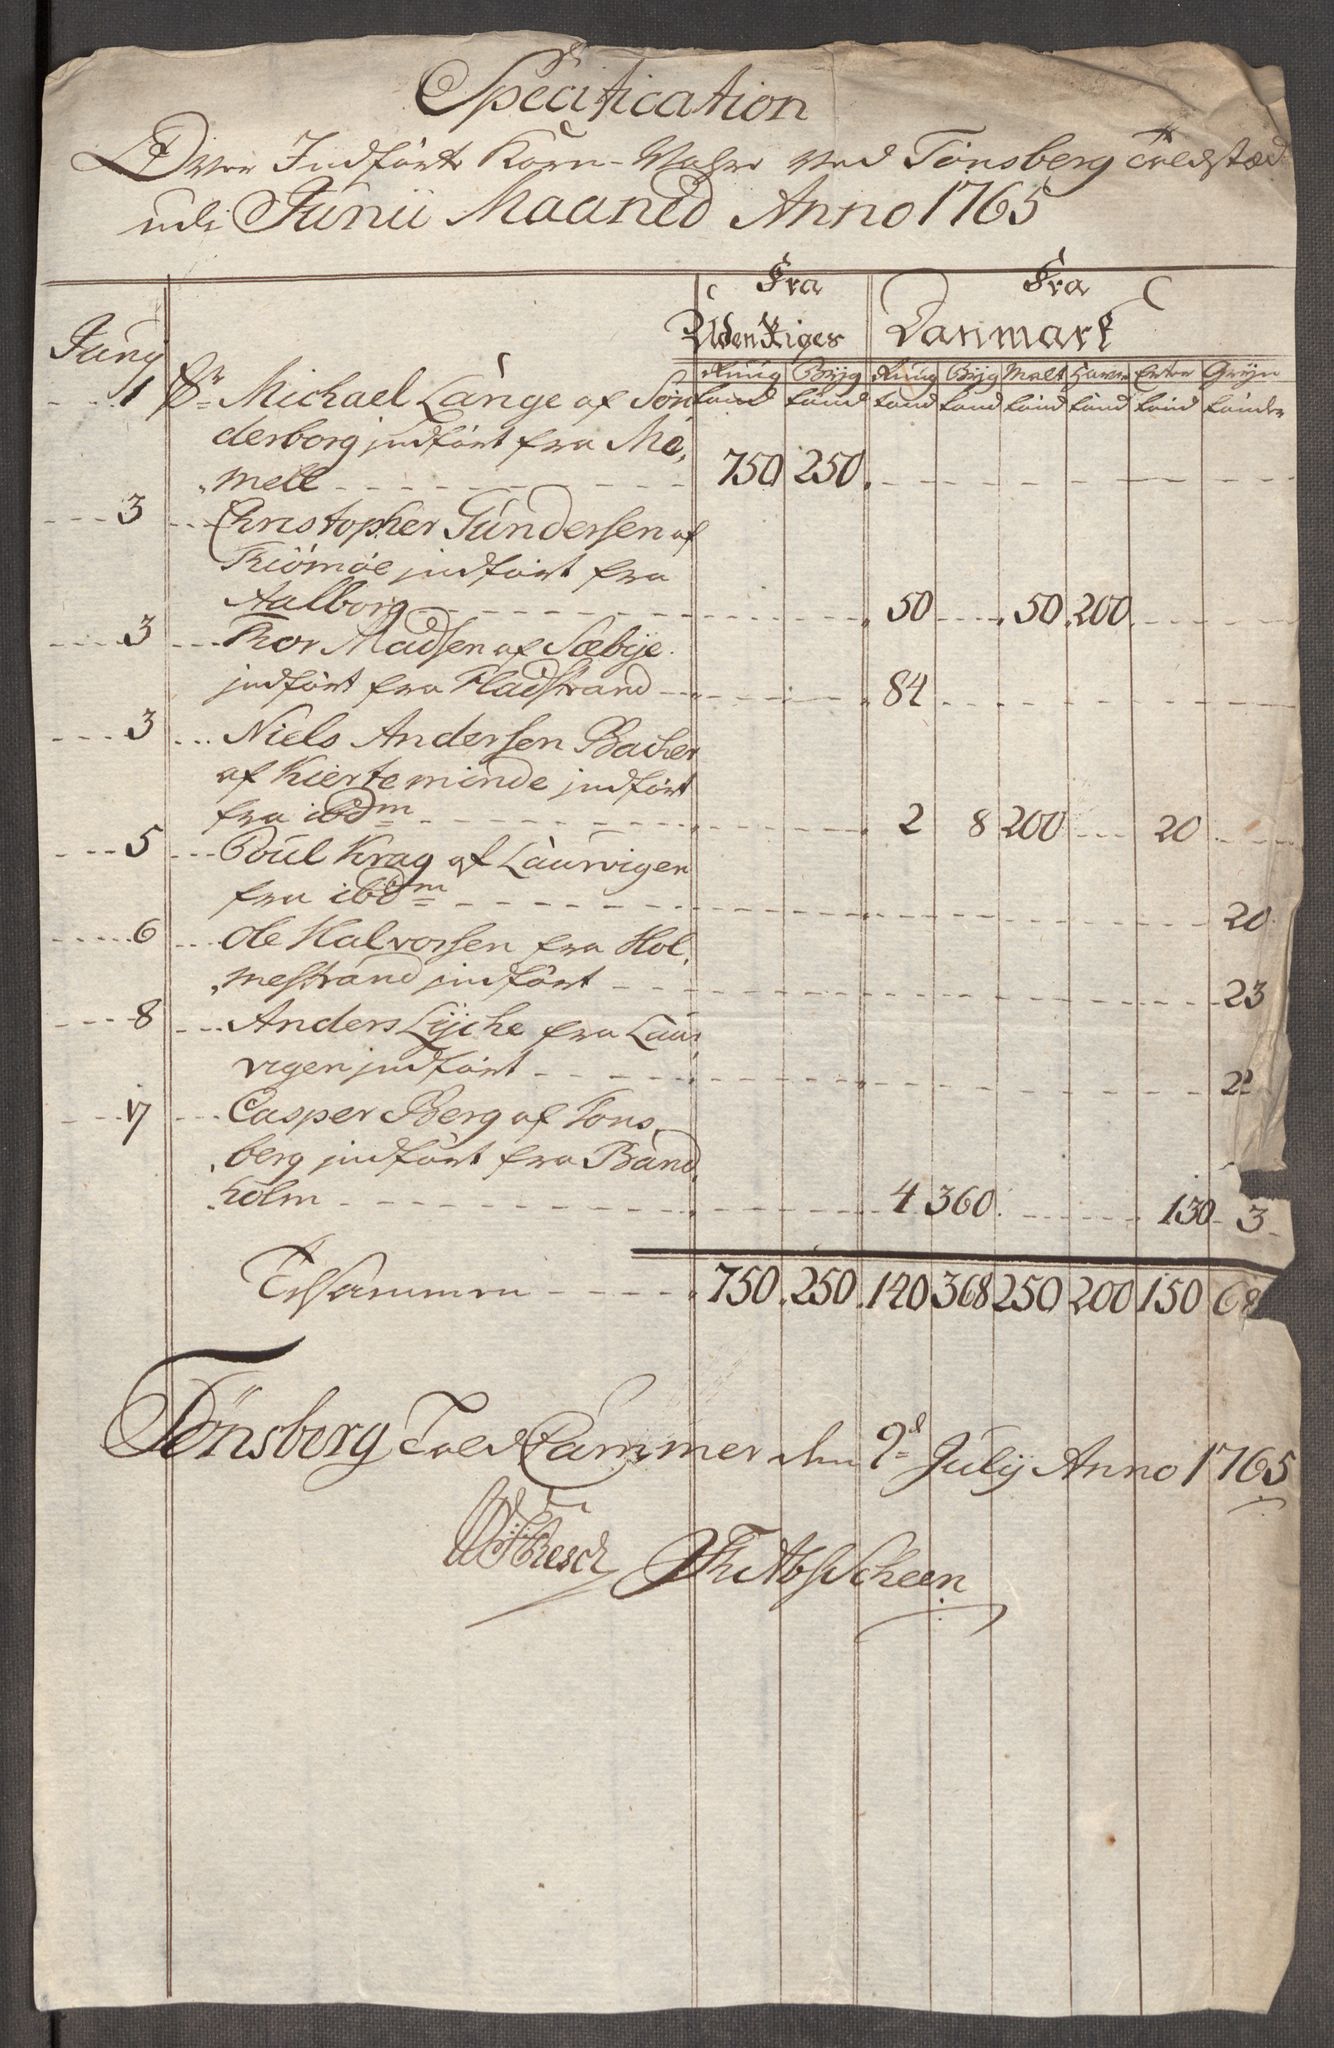 Specification
Over Indförte Korn-Vahre ved Tönsberg Toldstæd
udi Junii Maaned Anno 1765
Fra Fra
Uden Riges Danmark
Junij
Rüug Bÿg Rüug Bÿg Malt Haver Erter Grÿn
tönd tönd tönd tönd tönd tönd tönd tönder
1 Sr Michael Lange af Son
derborg indfört fra Me,
,mell 750 250
3 Christopher Gundersen af
Thiömöe indfört fra
Aalborg 50 50 200
3 Thor Madsen af Sæbÿe
indfört fra Fladstrand 84
3 Niels Andersen Bacher
af Kierteminde indfört
fra ibdm 2 8 200 20
5 Poul Krag af Laurvigen
fra ibdm 20
6 Ole Halvorsen fra Hol,
,mestrand indfört 23
8 Anders Lÿche fra Laur
vigen indfört 2
17 Casper Berg af Tons,
,berg indfört fra Band,
,holm 4 360 130 3
Tilsammen 750 250 140 368 250 200 150 68
Tönsberg Told Cammer den 9d Julÿ Anno 1765
Resch Scheen